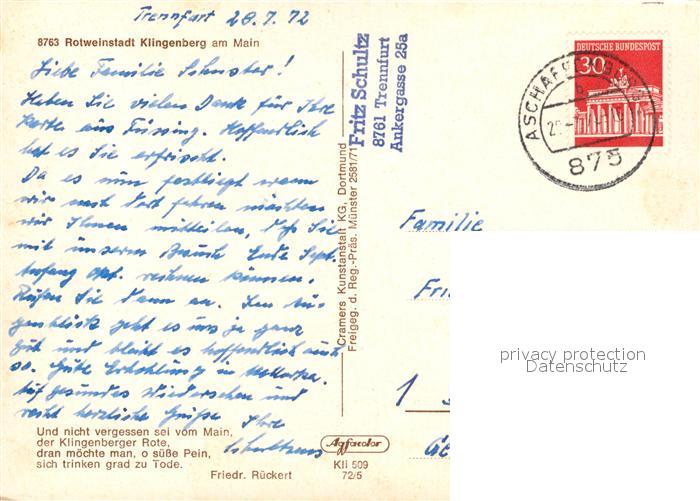 Trennfurt 28.7.72
8763 Rotweinstadt Klingenberg am Main
Liebe Familie Schuster!
Haben Sie vielen Dank für Ihre
Karte aus Füssing. Hoffentlich
hat es Sie erfrischt.
Da es nun festliegt wann
wir nach Dort fahren möchten
wir Ihnen mitteilen, daß Sie
mit unserem Besuch Ende Sept.
Anfang Okt. rechnen können.
Rufen Sie dann an. Im Au-
genblick geht es uns ja ganz
gut und bleibt es hoffentlich auch
so. Gute Erhohlung in
Auf gesundes Wiedersehen und
recht herzliche Grüße
Ihre
Schultzens
Und nicht vergessen sei vom Main,
der Klingenberger Rote,
dran möchte man, o süße Pein,
sich trinken grad zu Tode.
Friedr. Rückert
Cramers Kunstanstalt KG, Dortmund
Freigeg. d. Reg.-Präs. Münster 2581/71
Fritz Schultz
8761 Trennfurt
Ankergasse 25a
DEUTSCHE BUNDESPOST
30
875
Familie
1
privacy protection
Datenschutz
Agfacolor
Kli 509
72/5